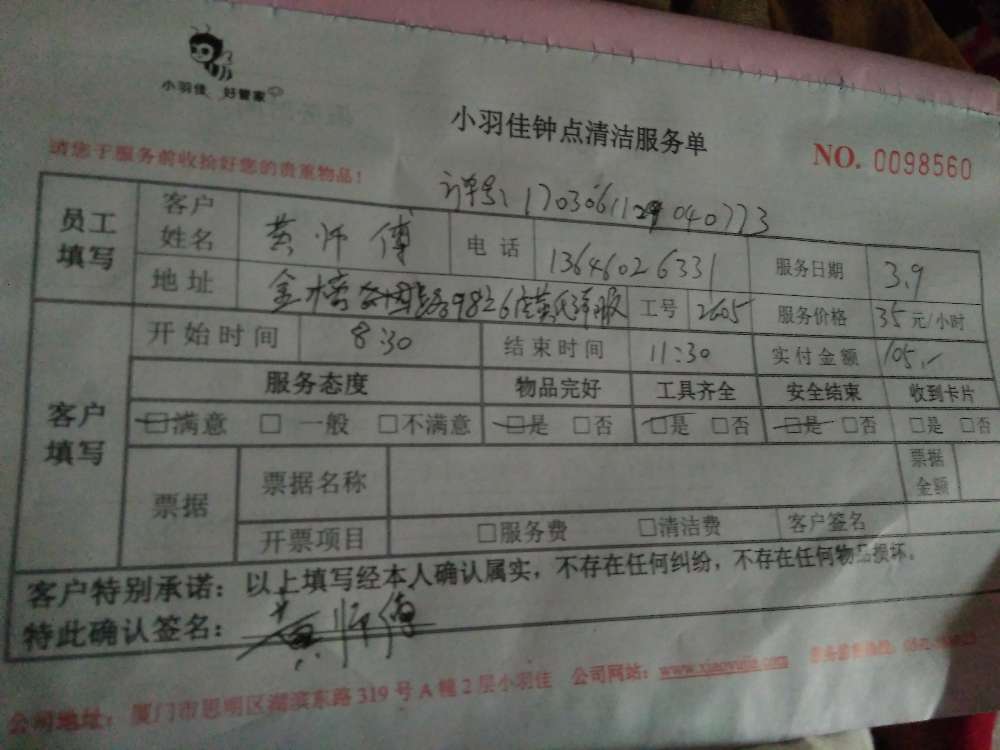 小羽佳 好管家
小羽佳钟点清洁服务单
NO. 0098560
请您于服务前收拾好您的贵重物品!
订单号: 040773
员工填写 客户姓名 黄师傅 电话 13646026331 服务日期 3.9
地址 金榜 工号 2605 服务价格 35元/小时
客户填写 开始时间 8:30 结束时间 11:30 实付金额 105.-
服务态度 物品完好 工具齐全 安全结束 收到卡片
□满意 □一般 □不满意 □是 □否 □是 □否 □是 □否 □是 □否
票据 票据名称 票据金额
开票项目 □服务费 □清洁费 客户签名
客户特别承诺:以上填写经本人确认属实,不存在任何纠纷,不存在任何物品损坏。
特此确认签名: 黄师傅
公司地址: 厦门市思明区湖滨东路319号A幢2层小羽佳 公司网站: www.xiaoyujia.com